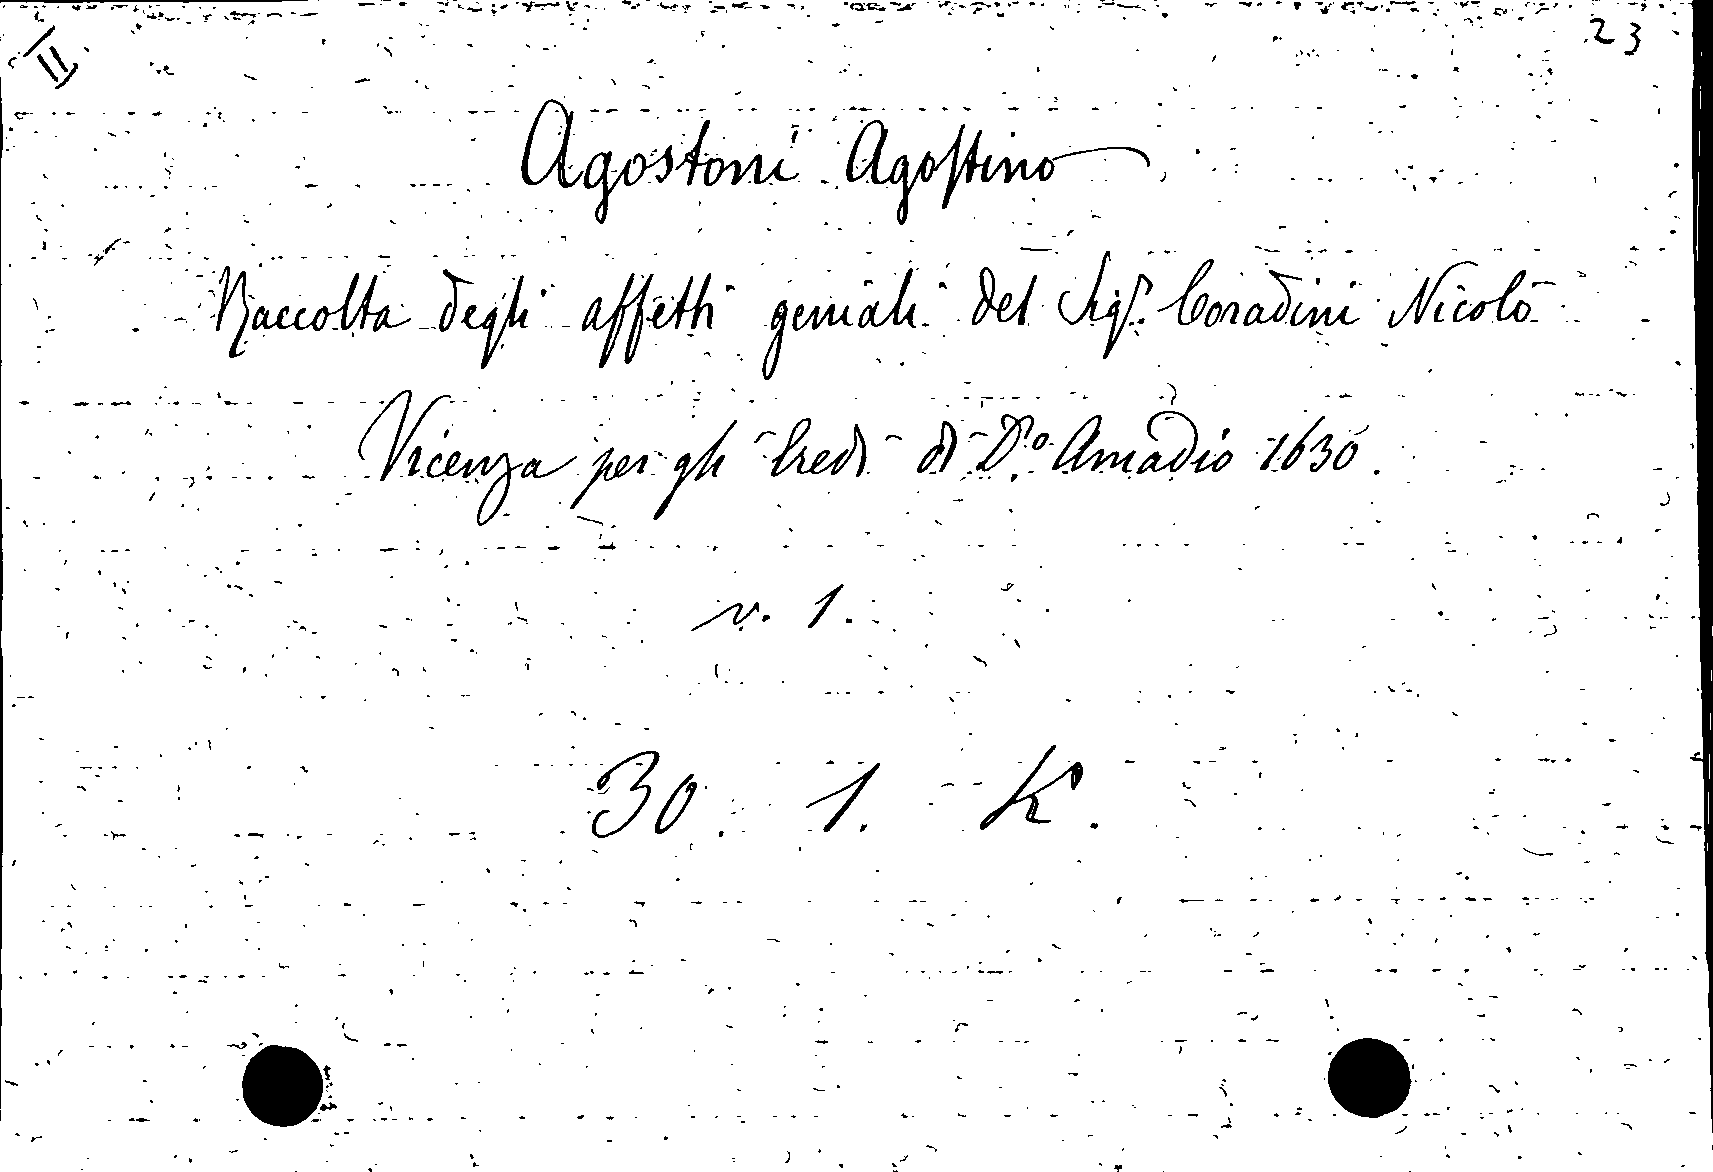 II
23
Agostoni Agostino
Raccolta degli affetti geniali del Sigr. Coradini Nicolò
Vicenza per gli Eredi di D.o Amadio 1630.
v. 1.
30. 1. K.